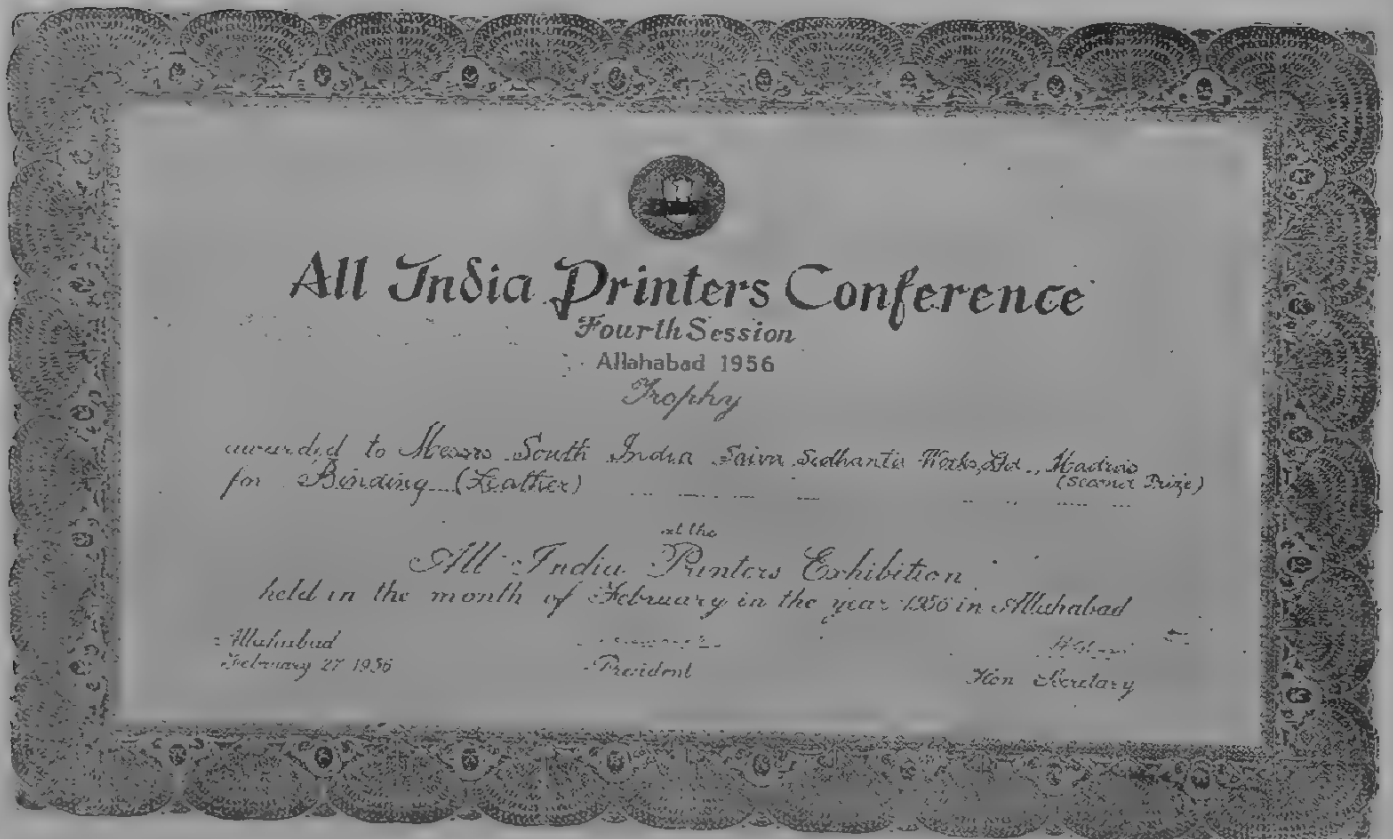 All India Printers Conference
Fourth Session
Allahabad 1956
Trophy
awarded to Messrs South India Saiva Sidhanta Works Ltd., Madras
for Binding (Leather) (Second Prize)
at the
All India Printers Exhibition
held in the month of February in the year 1956 in Allahabad
Allahabad
February 27 1956
President
Hon Secretary